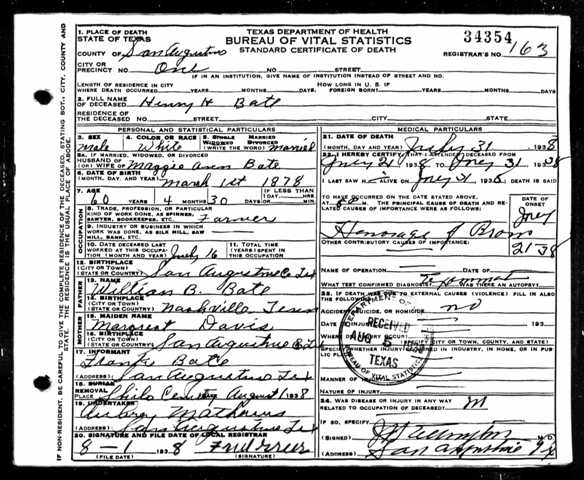 TEXAS DEPARTMENT OF HEALTH
BUREAU OF VITAL STATISTICS
STANDARD CERTIFICATE OF DEATH
34354
REGISTRAR'S NO. 163
1. PLACE OF DEATH
STATE OF TEXAS
COUNTY OF San Augustine
CITY OR PRECINCT NO. One NO. STREET
IF IN AN INSTITUTION, GIVE NAME OF INSTITUTION INSTEAD OF STREET AND NO.
LENGTH OF RESIDENCE IN CITY WHERE DEATH OCCURRED YEARS MONTHS DAYS
HOW LONG IN U. S. IF FOREIGN BORN? YEARS MONTHS DAYS
2. FULL NAME OF DECEASED Henry H Bate
RESIDENCE OF THE DECEASED NO. STREET CITY STATE
PERSONAL AND STATISTICAL PARTICULARS
3. SEX Male
4. COLOR OR RACE White
5. SINGLE WIDOWED MARRIED DIVORCED (WRITE THE WORD) Married
5A. IF MARRIED, WIDOWED, OR DIVORCED
HUSBAND OF (OR) WIFE Maggie Ann Bate
6. DATE OF BIRTH (MONTH, DAY, AND YEAR) March 1st 1878
7. AGE 60 YEARS 4 MONTHS 30 DAYS
IF LESS THAN 1 DAY
HRS. OR MIN.
OCCUPATION
8. TRADE, PROFESSION, OR PARTICULAR KIND OF WORK DONE, AS SPINNER, SAWYER, BOOKKEEPER, ETC. Farmer
9. INDUSTRY OR BUSINESS IN WHICH WORK WAS DONE, AS SILK MILL, SAW MILL, BANK, ETC.
10. DATE DECEASED LAST WORKED AT THIS OCCUPATION (MONTH AND YEAR) July 16
11. TOTAL TIME (YEARS) SPENT IN THIS OCCUPATION
12. BIRTHPLACE (CITY OR TOWN) (STATE OR COUNTRY) San Augustine Co Tex
FATHER
13. NAME William B. Bate
14. BIRTHPLACE (CITY OR TOWN) (STATE OR COUNTRY) Nashville Tenn
MOTHER
15. MAIDEN NAME Margret Davis
16. BIRTHPLACE (CITY OR TOWN) (STATE OR COUNTRY) San Augustine
17. INFORMANT Bate
(ADDRESS) San Augustine Tex
18. BURIAL REMOVAL
PLACE Shilo Cem August 1 1938
19. UNDERTAKER Aubrey Mathews
(ADDRESS) San Augustine Tex
20. SIGNATURE AND FILE DATE OF LOCAL REGISTRAR
8-1 1938 Fred Greer
(FILE DATE) (SIGNATURE)
MEDICAL PARTICULARS
21. DATE OF DEATH
(MONTH, DAY AND YEAR) July 31 1938
22. I HEREBY CERTIFY THAT I ATTENDED DECEASED FROM
July 21 1938 TO July 31 1938
I LAST SAW ALIVE ON July 31 1938 DEATH IS SAID
TO HAVE OCCURRED ON THE DATE STATED ABOVE,
AT M. THE PRINCIPAL CAUSE OF DEATH AND RELATED CAUSES OF IMPORTANCE WERE AS FOLLOWS:
DATE OF ONSET
July
21-38
OTHER CONTRIBUTORY CAUSES OF IMPORTANCE:
NAME OF OPERATION
WHAT TEST CONFIRMED DIAGNOSIS? WAS THERE AN AUTOPSY?
23. IF DEATH WAS DUE TO EXTERNAL CAUSES (VIOLENCE) FILL IN ALSO THE FOLLOWING:
ACCIDENT, SUICIDE, OR HOMICIDE? no
193
(CITY OR TOWN, COUNTY, AND STATE)
MANNER OF
NATURE OF INJURY
24. WAS DISEASE OR INJURY IN ANY WAY RELATED TO OCCUPATION OF DECEASED?
IF SO, SPECIFY
(SIGNED) M. D.
(ADDRESS) San Augustine Tx
RECEIVED
AUG 5 1938
TEXAS
BUREAU OF VITAL STATISTICS